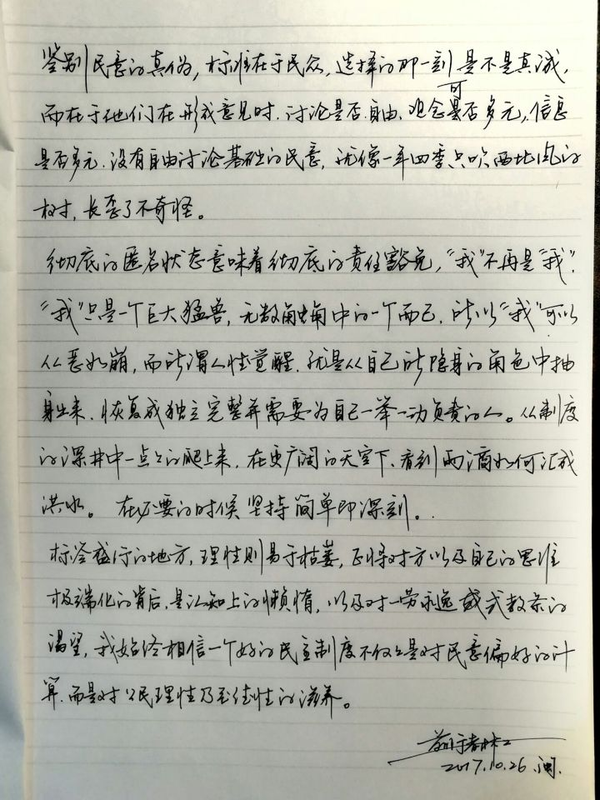 鉴别民意的真伪，标准在于民众，选择的那一刻是不是真诚，
而在于他们在形成意见时，讨论是否可自由，观念是否多元，信息
是否多元，没有自由讨论基础的民意，就像一年四季只吹西北风的
树，长歪了不奇怪。
彻底的匿名状态意味着彻底的责任豁免，“我”不再是“我”，
“我”只是一个巨大猛兽，无数触角中的一个而已，所以“我”可以
从恶如崩，而所谓人性觉醒，就是从自己所隐身的角色中抽
身出来，恢复成独立完整并需要为自己一举一动负责的人。从制度
的深井中一点点的爬上来，在更广阔的天空下，看到雨滴如何汇成
洪水。 在必要的时候坚持简单即深刻。
标签盛行的地方，理性则易于枯萎，正将对方以及自己的思维
极端化的背后，是认知上的懒惰，以及对一劳永逸或式教条的
渴望，我始终相信一个好的民主制度不仅仅是对民意偏好的计
算，而是对公民理性乃至德性的滋养。
2017.10.26.闽